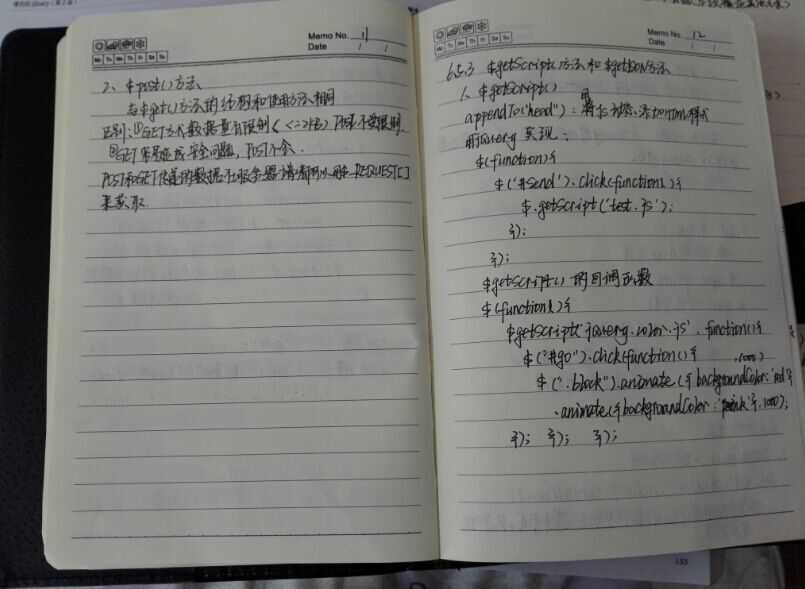 Memo No. 11
Date / /
Mo Tu We Th Fr Sa Su
2、$post()方法
与$get()方法的结构和使用方法相同
区别:①GET方式数据量有限制(<=2kB) POST不受限制
②GET容易造成安全问题,POST不会.
POST和GET传递的数据在服务器端都可以用$_REQUEST[]
来获取
Memo No. 12
Date / /
Mo Tu We Th Fr Sa Su
6.5.3 $getScript()方法和$getJson方法
1、$getScript()
appendTo("head"):
用jquery实现:
$(function(){
$('#send').click(function(){
$.getScript('test.js');
});
});
$getScript()的回调函数
$(function(){
$getScript('jquery.color.js'.function(){
$("#go").click(function(){
$(".block").animate({backgroundColor:'red'},1000)
.animate({backgroundColor:'pink'},1000);
}); }); });
133